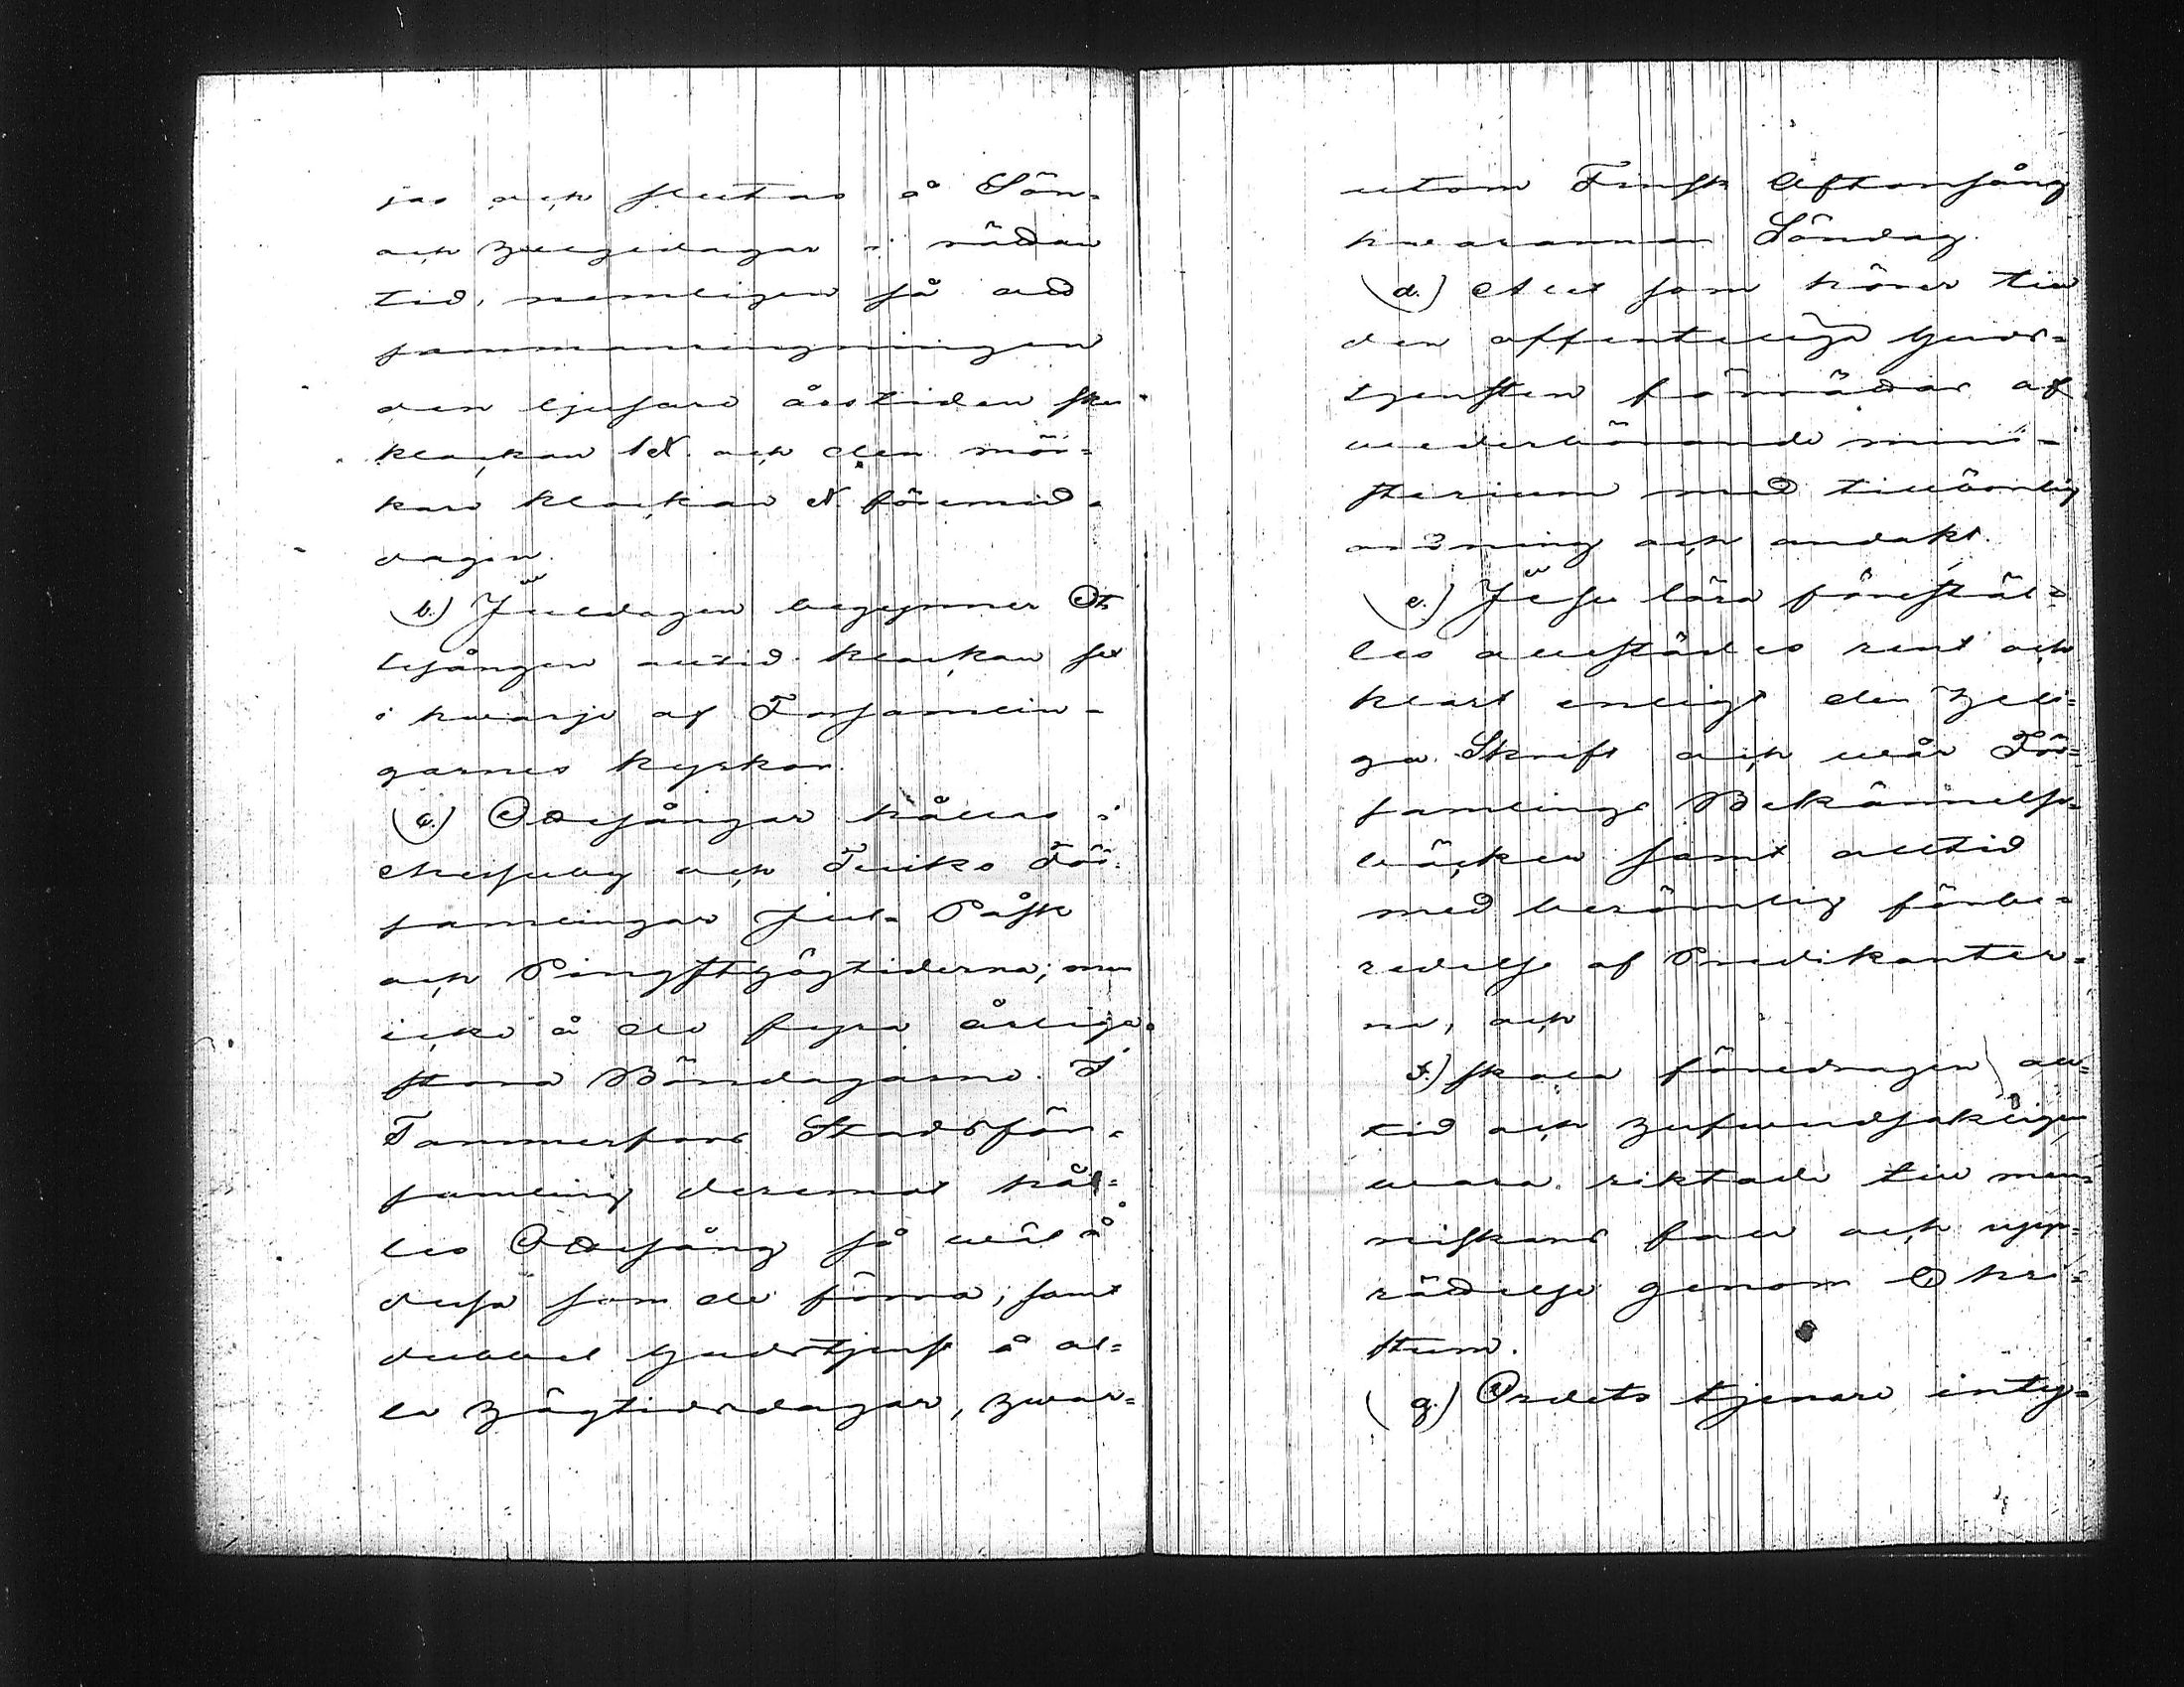 jas och slutas å Sön-
och Helgedagar i rättan
tid, nemligen så att
sammanringningen
den ljusare årstiden sker
klockan och den mör-
kare klockan förmid-
dagen.
b.) Juldagen begynner Ot-
tesången alltid klockan sex
i hwarje af Församlin-
garnes kyrkor.
c.) Ottesångar hållas i
Messuby och Teisko För-
samlingar Jul- Påsk
och Pingsthögtiderna; men
icke å de fyra årliga
stora Böndagarne. I
Tammerfors Stadsför-
samling deremot hål-
les Ottesång så wäl å
dessa som de förra, samt
dubbel Gudstjenst å al-
la Högtidsdagar, hwar-
utom Finsk Aftonsång
hwarannan Söndag.
d.) Allt som hörer till
den offentliga Guds-
tjensten förrättas af
wederbörande mini-
sterium med tillbörlig
ordning och andakt.
e.) Jesu lära föreställ-
les allestädes rent och
klart enligt den Heli-
ga Skrift och wår För-
samlings Bekännelse-
böcker samt alltid
med berömlig förbe-
redelse af Predikanter-
ne, och
f.) skola föredragen all-
tid och hufwudsakligen
wara riktade till men-
niskans fall och upp-
rättelse genom Chri-
stum.
g.) Ordets tjenare intyg-